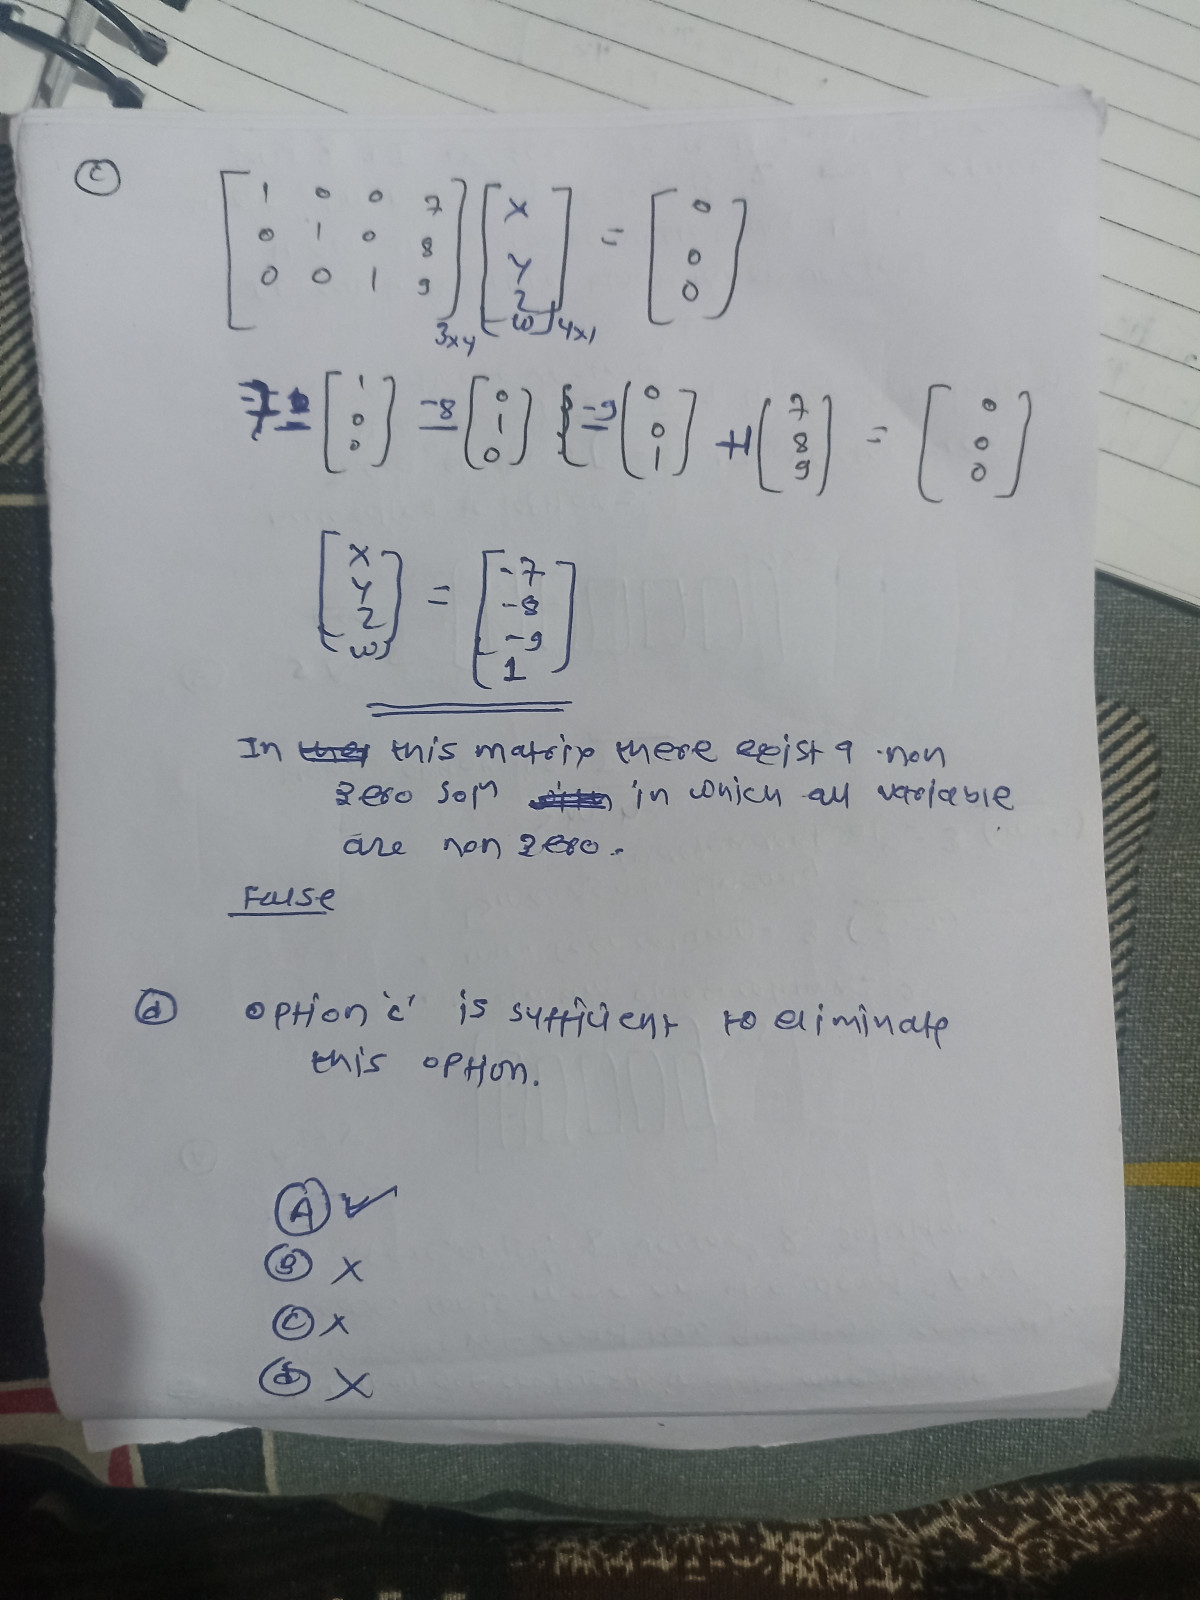 c
[1 0 0 7] [x] = [0]
[0 1 0 8] [y] [0]
[0 0 1 9] [z] [0]
3x4 [w] 4x1
-7 [1 0 0] -8 [0 1 0] -9 [0 0 1] +1 [7 8 9] = [0 0 0]
[x] = [-7]
[y] [-8]
[z] [-9]
[w] [1]
In this matrix there exist a non
zero soln in which all variable
are non zero.
False
d option 'c' is sufficient to eliminate
this option.
A ✓
B x
C x
d x